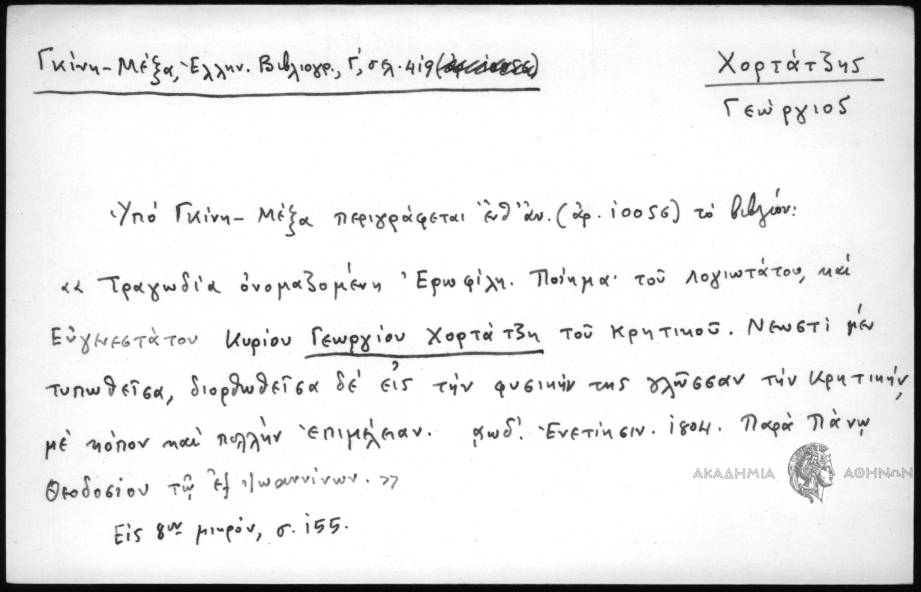 Γκίνη-Μέξα, Ἑλλην. Βιβλιογρ., Γ', σελ. 419
Χορτάτζης
Γεώργιος
Ὑπό Γκίνη-Μέξα περιγράφεται ἔνθ' ἄν. (ἀρ. 10056) τὸ βιβλίον:
«Τραγωδία ὀνομαζομένη Ἐρωφίλη. Ποίημα τοῦ λογιωτάτου, καί
Εὐγενεστάτου Κυρίου Γεωργίου Χορτάτζη τοῦ Κρητικοῦ. Νεωστί μέν
τυπωθεῖσα, διορθωθεῖσα δέ εἰς τήν φυσικήν της γλῶσσαν τήν Κρητικήν,
μέ κόπον καί πολλήν ἐπιμέλειαν. ͵αωδ'. Ἐνετίησιν. 1804. Παρά Πάνῳ
Θεοδοσίου τῷ ἐξ Ἰωαννίνων.»
Εἰς 8ον μικρόν, σ. 155.
ΑΚΑΔΗΜΙΑ ΑΘΗΝΩΝ